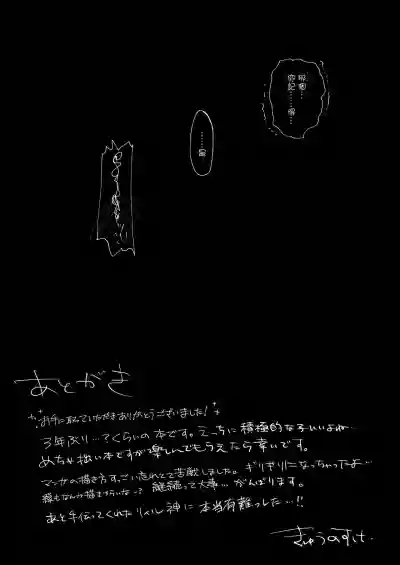 那個…
您記……得
……嗯
あとがき
お手に取っていただきありがとうございました！
3年ぶり…くらいの本です。えっちに積極的な
めちゃ拙い本ですが楽しんでもらえたら幸いです。
マンガの描き方すごい忘れてて苦戦しました。ギリギリになっちゃったよ…
継続って大事…がんばります。
あと手伝ってくれた 神に本当有難っした…!!
きゅうのすけ